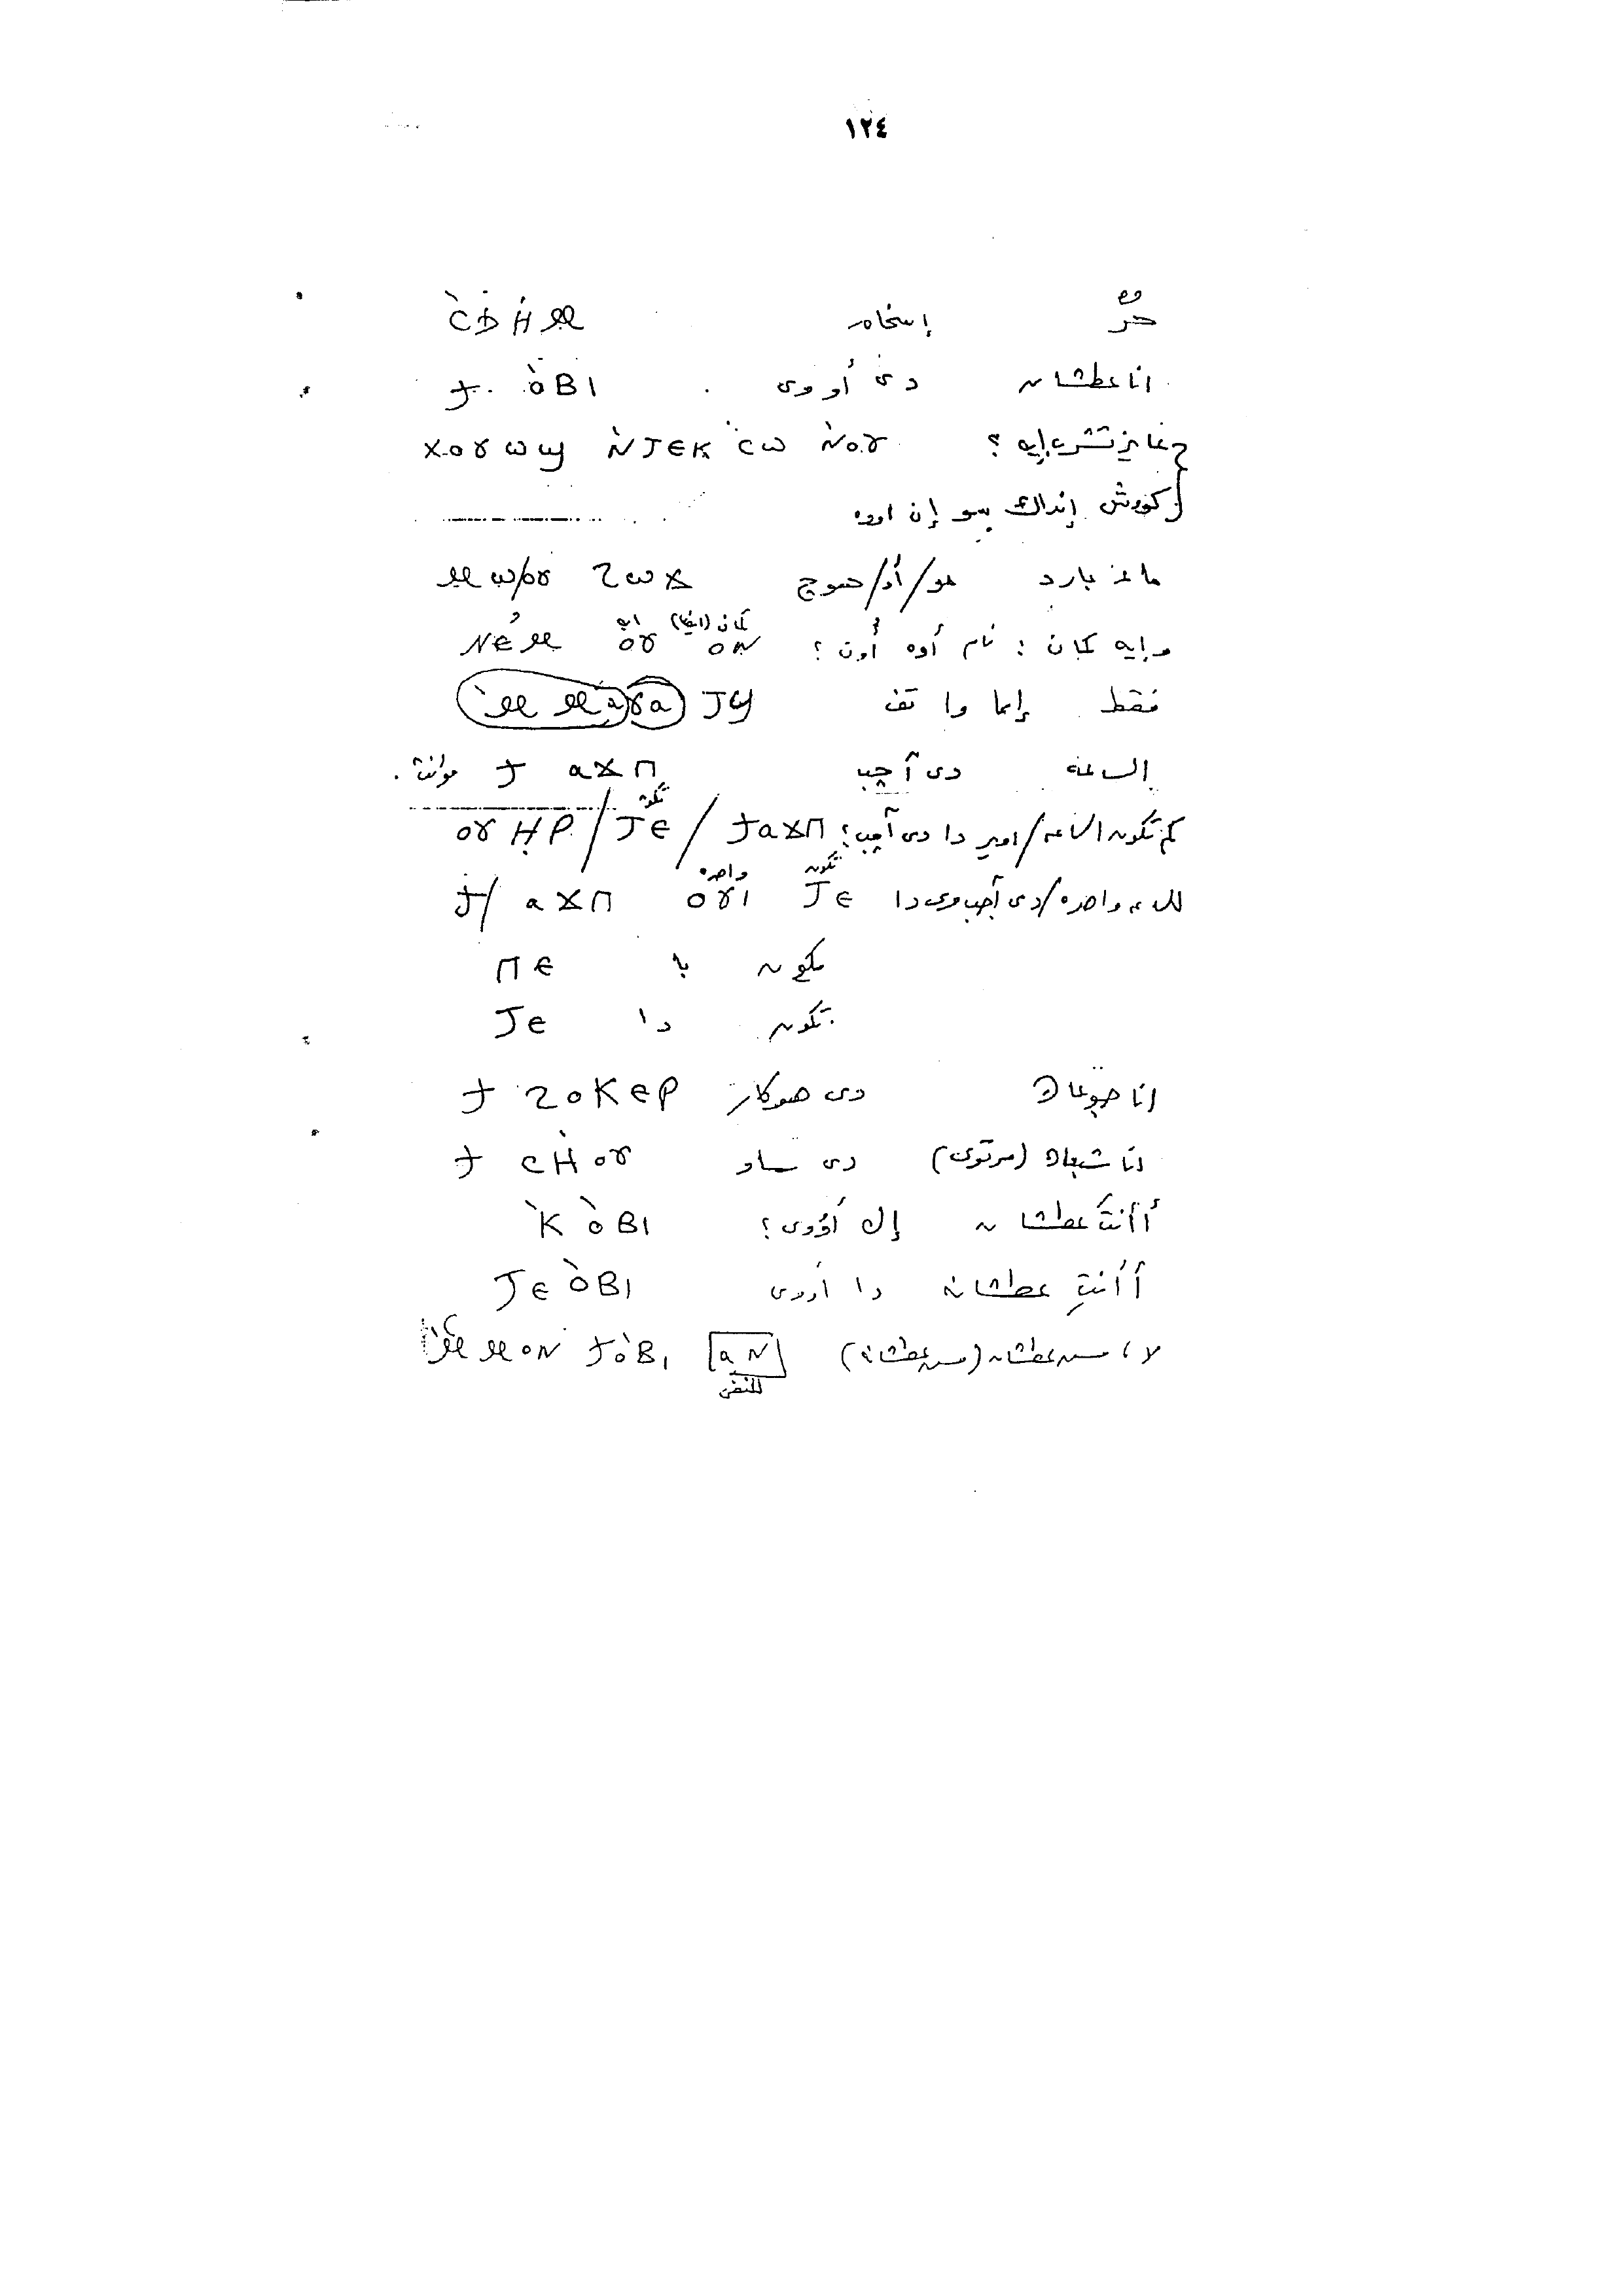 ١٢٤
حرٌّ إسخام ⲥ̀ϧⲏⲙ
انا عطشان دى أووى ϯ ⲟ̀ⲃⲓ
عايز تشرب إيه ؟ ⲭⲟⲩⲱϣ ⲛ̀ⲧⲉⲕ ⲥⲱ ⲛ̀ⲟⲩ
كووش إنداك سو إن اووه
ماء بارد مو/أو/هوج ⲙⲱ/ⲟⲩ ϩⲱϫ
وإيه كمان : نام أوه أون ؟ ⲛⲉⲙ ⲟⲩ إيه ⲟⲛ كمان (ايضا)
فقط إما وا تف ⲙ̀ⲙⲁⲩⲁⲧϥ
الساعة دى آچب ϯ ⲁϫⲡ مؤنث .
كم تكون الساعة/اوير دا دى آچب؟ ⲟⲩⲏⲣ/ⲧⲉ تكون/ϯⲁϫⲡ
الساعة واحدة/دى آچب ووى دا ϯ/ ⲁϫⲡ ⲟⲩⲓ واحدة ⲧⲉ تكون
يكون با ⲡⲉ
تكون دا ⲧⲉ
انا جوعان دى هوكار ϯ ϩⲟⲕⲉⲣ
انا شبعان (مرتوى) دى ساو ϯ ⲥⲏ̀ⲟⲩ
أأنتَ عطشان إك أووى ؟ ⲕ̀ ⲟ̀ⲃⲓ
أأنتِ عطشانة دا أووى ⲧⲉ ⲟ̀ⲃⲓ
لا ، مش عطشان (مش عطشانة) ⲙ̀ⲙⲟⲛ ϯⲟ̀ⲃⲓ ⲁⲛ
للنفى